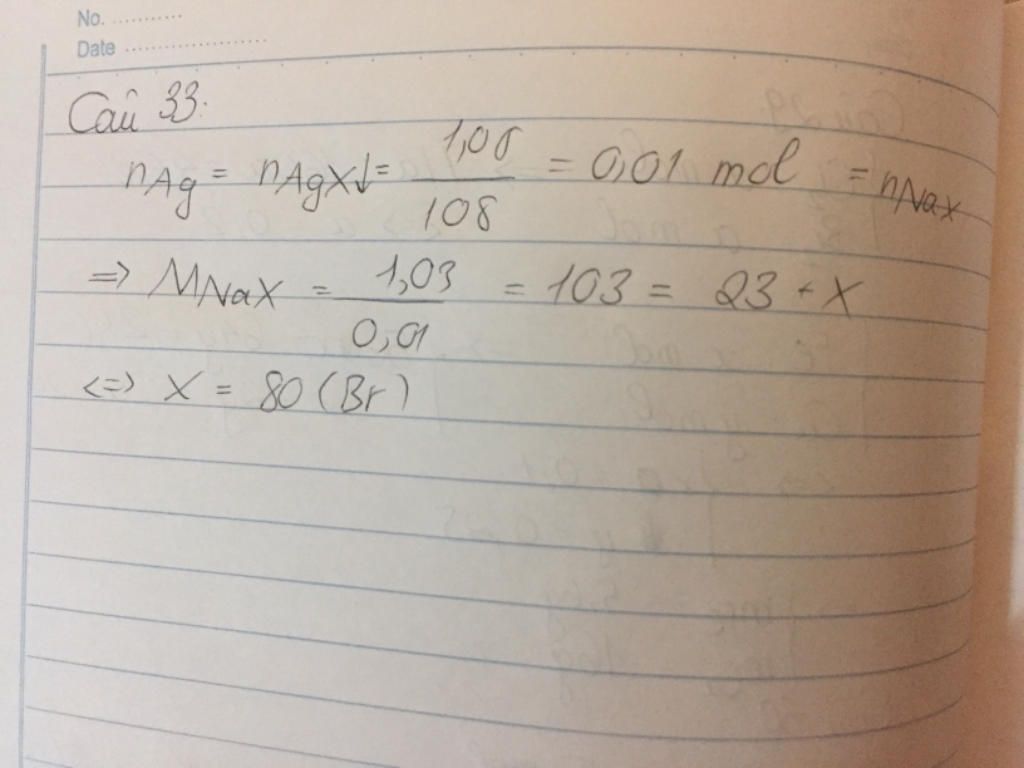 No. ............
Date .........................
Câu 33.
nAg = nAgX↓ = 1,08 / 108 = 0,01 mol = nNaX
=> MNaX = 1,03 / 0,01 = 103 = 23 + X
<=> X = 80 (Br)